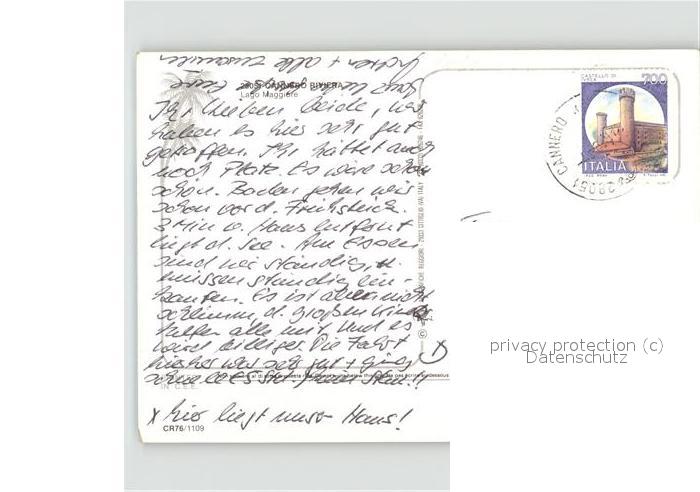 28051 CANNERO RIVIERA
Lago Maggiore
Ihr Lieben beide, wir
haben es hier sehr gut
getroffen. Ihr hättet auch
noch Platz. Es wäre schon
schön. Baden gehen wir
schon vor d. Frühstück.
3 Min v. Haus entfernt
liegt d. See. Am Essen
sind wir ständig, u.
müssen ständig ein-
kaufen. Es ist aber nicht
schlimm, d. großen Kinder
helfen alle mit und es
wird billiger. Die Fahrt
hierher war sehr gut + ging
schnell
x hier liegt unser Haus!
IN C.E.E.
CR76/1109
x
CASTELLO DI
IVREA
700
ITALIA
28051 CANNERO
privacy protection (c)
Datenschutz